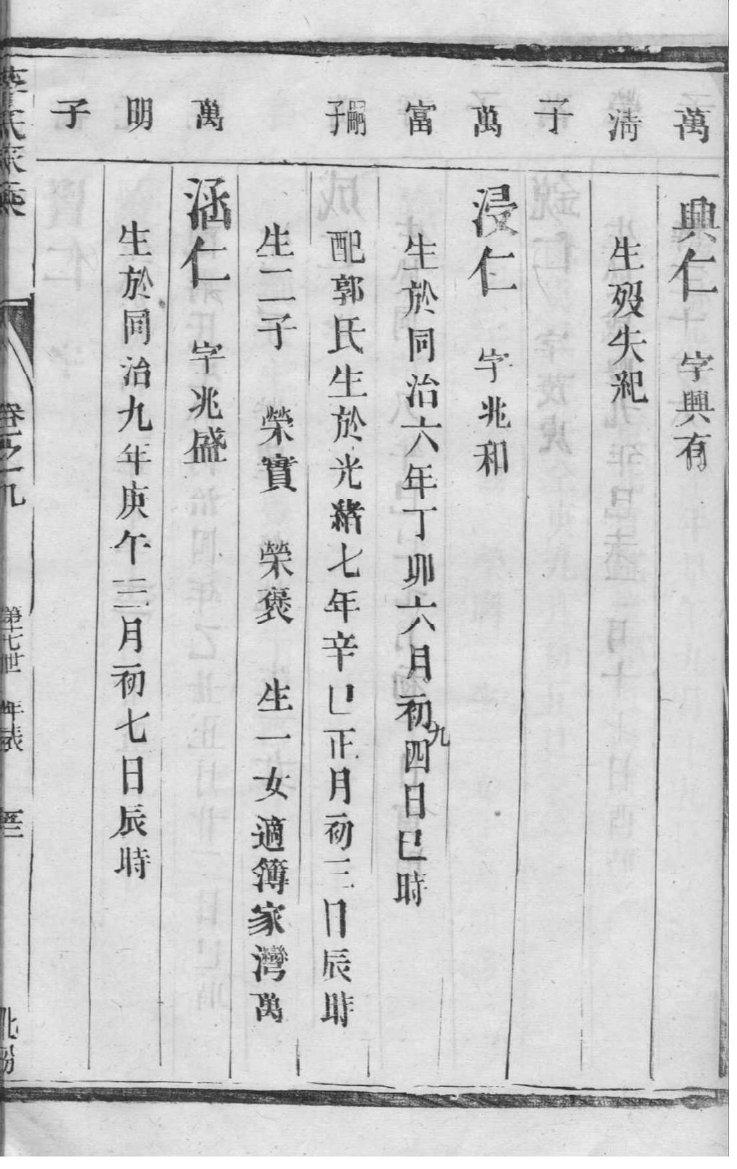 萬 興仁 字興有
清 生歿失紀
子
萬 浸仁 字兆和
富 生於同治六年丁卯六月初九四日巳時
嗣子 配郭氏生於光緒七年辛巳正月初三日辰時
生二子 榮實 榮褒 生一女適簿家灣萬
萬 涵仁 字兆盛
明 生於同治九年庚午三月初七日辰時
子
氏家乘
卷之九
第十七世 年表